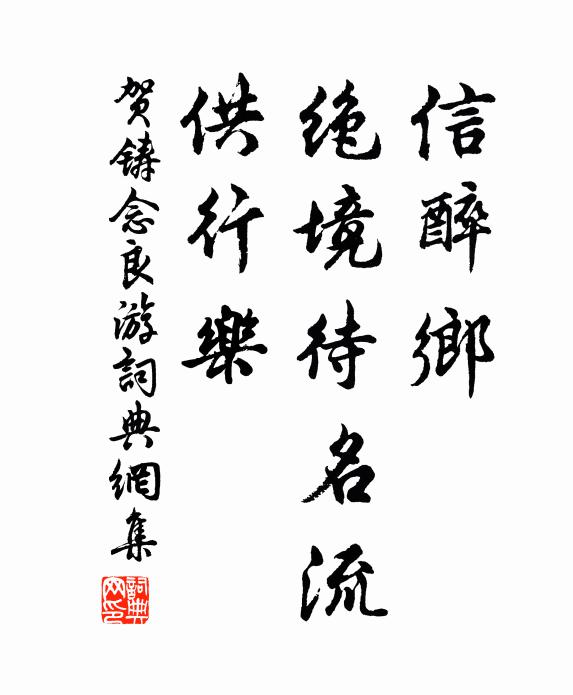 信醉鄉
絕境待名流
供行樂
賀鑄念良游詞典網集
詞典網印